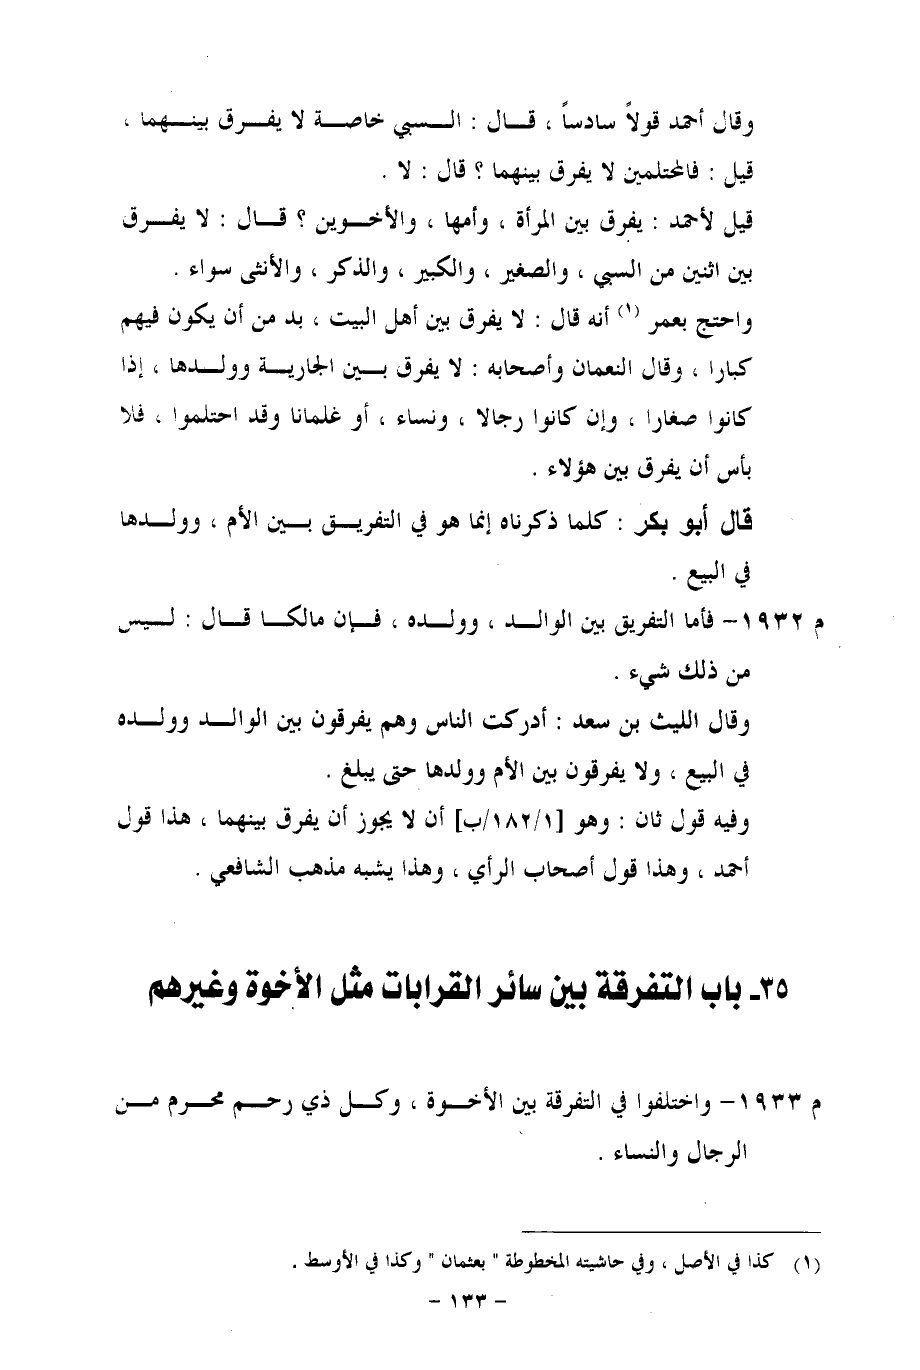 وقال أحمد قولاً سادساً ، قال : السبي خاصة لا يفرق بينهما ،
قيل : فالمحتلمين لا يفرق بينهما ؟ قال : لا .
قيل لأحمد : يفرق بين المرأة ، وأمها ، والأخوين ؟ قال : لا يفرق
بين اثنين من السبي ، والصغير ، والكبير ، والذكر ، والأنثى سواء .
واحتج بعمر (١) أنه قال : لا يفرق بين أهل البيت ، بد من أن يكون فيهم
كبارا ، وقال النعمان وأصحابه : لا يفرق بين الجارية وولدها ، إذا
كانوا صغارا ، وإن كانوا رجالا ، ونساء ، أو غلمانا وقد احتلموا ، فلا
بأس أن يفرق بين هؤلاء .
قال أبو بكر : كلما ذكرناه إنما هو في التفريق بين الأم ، وولدها
في البيع .
م ١٩٣٢- فأما التفريق بين الوالد ، وولده ، فإن مالكا قال : ليس
من ذلك شيء .
وقال الليث بن سعد : أدركت الناس وهم يفرقون بين الوالد وولده
في البيع ، ولا يفرقون بين الأم وولدها حتى يبلغ .
وفيه قول ثان : وهو [١/١٨٢/ب] أن لا يجوز أن يفرق بينهما ، هذا قول
أحمد ، وهذا قول أصحاب الرأي ، وهذا يشبه مذهب الشافعي .
٣٥- باب التفرقة بين سائر القرابات مثل الأخوة وغيرهم
م ١٩٣٣- واختلفوا في التفرقة بين الأخوة ، وكل ذي رحم محرم من
الرجال والنساء .
(١) كذا في الأصل ، وفي حاشيته المخطوطة " بعثمان " وكذا في الأوسط .
- ١٣٣ -